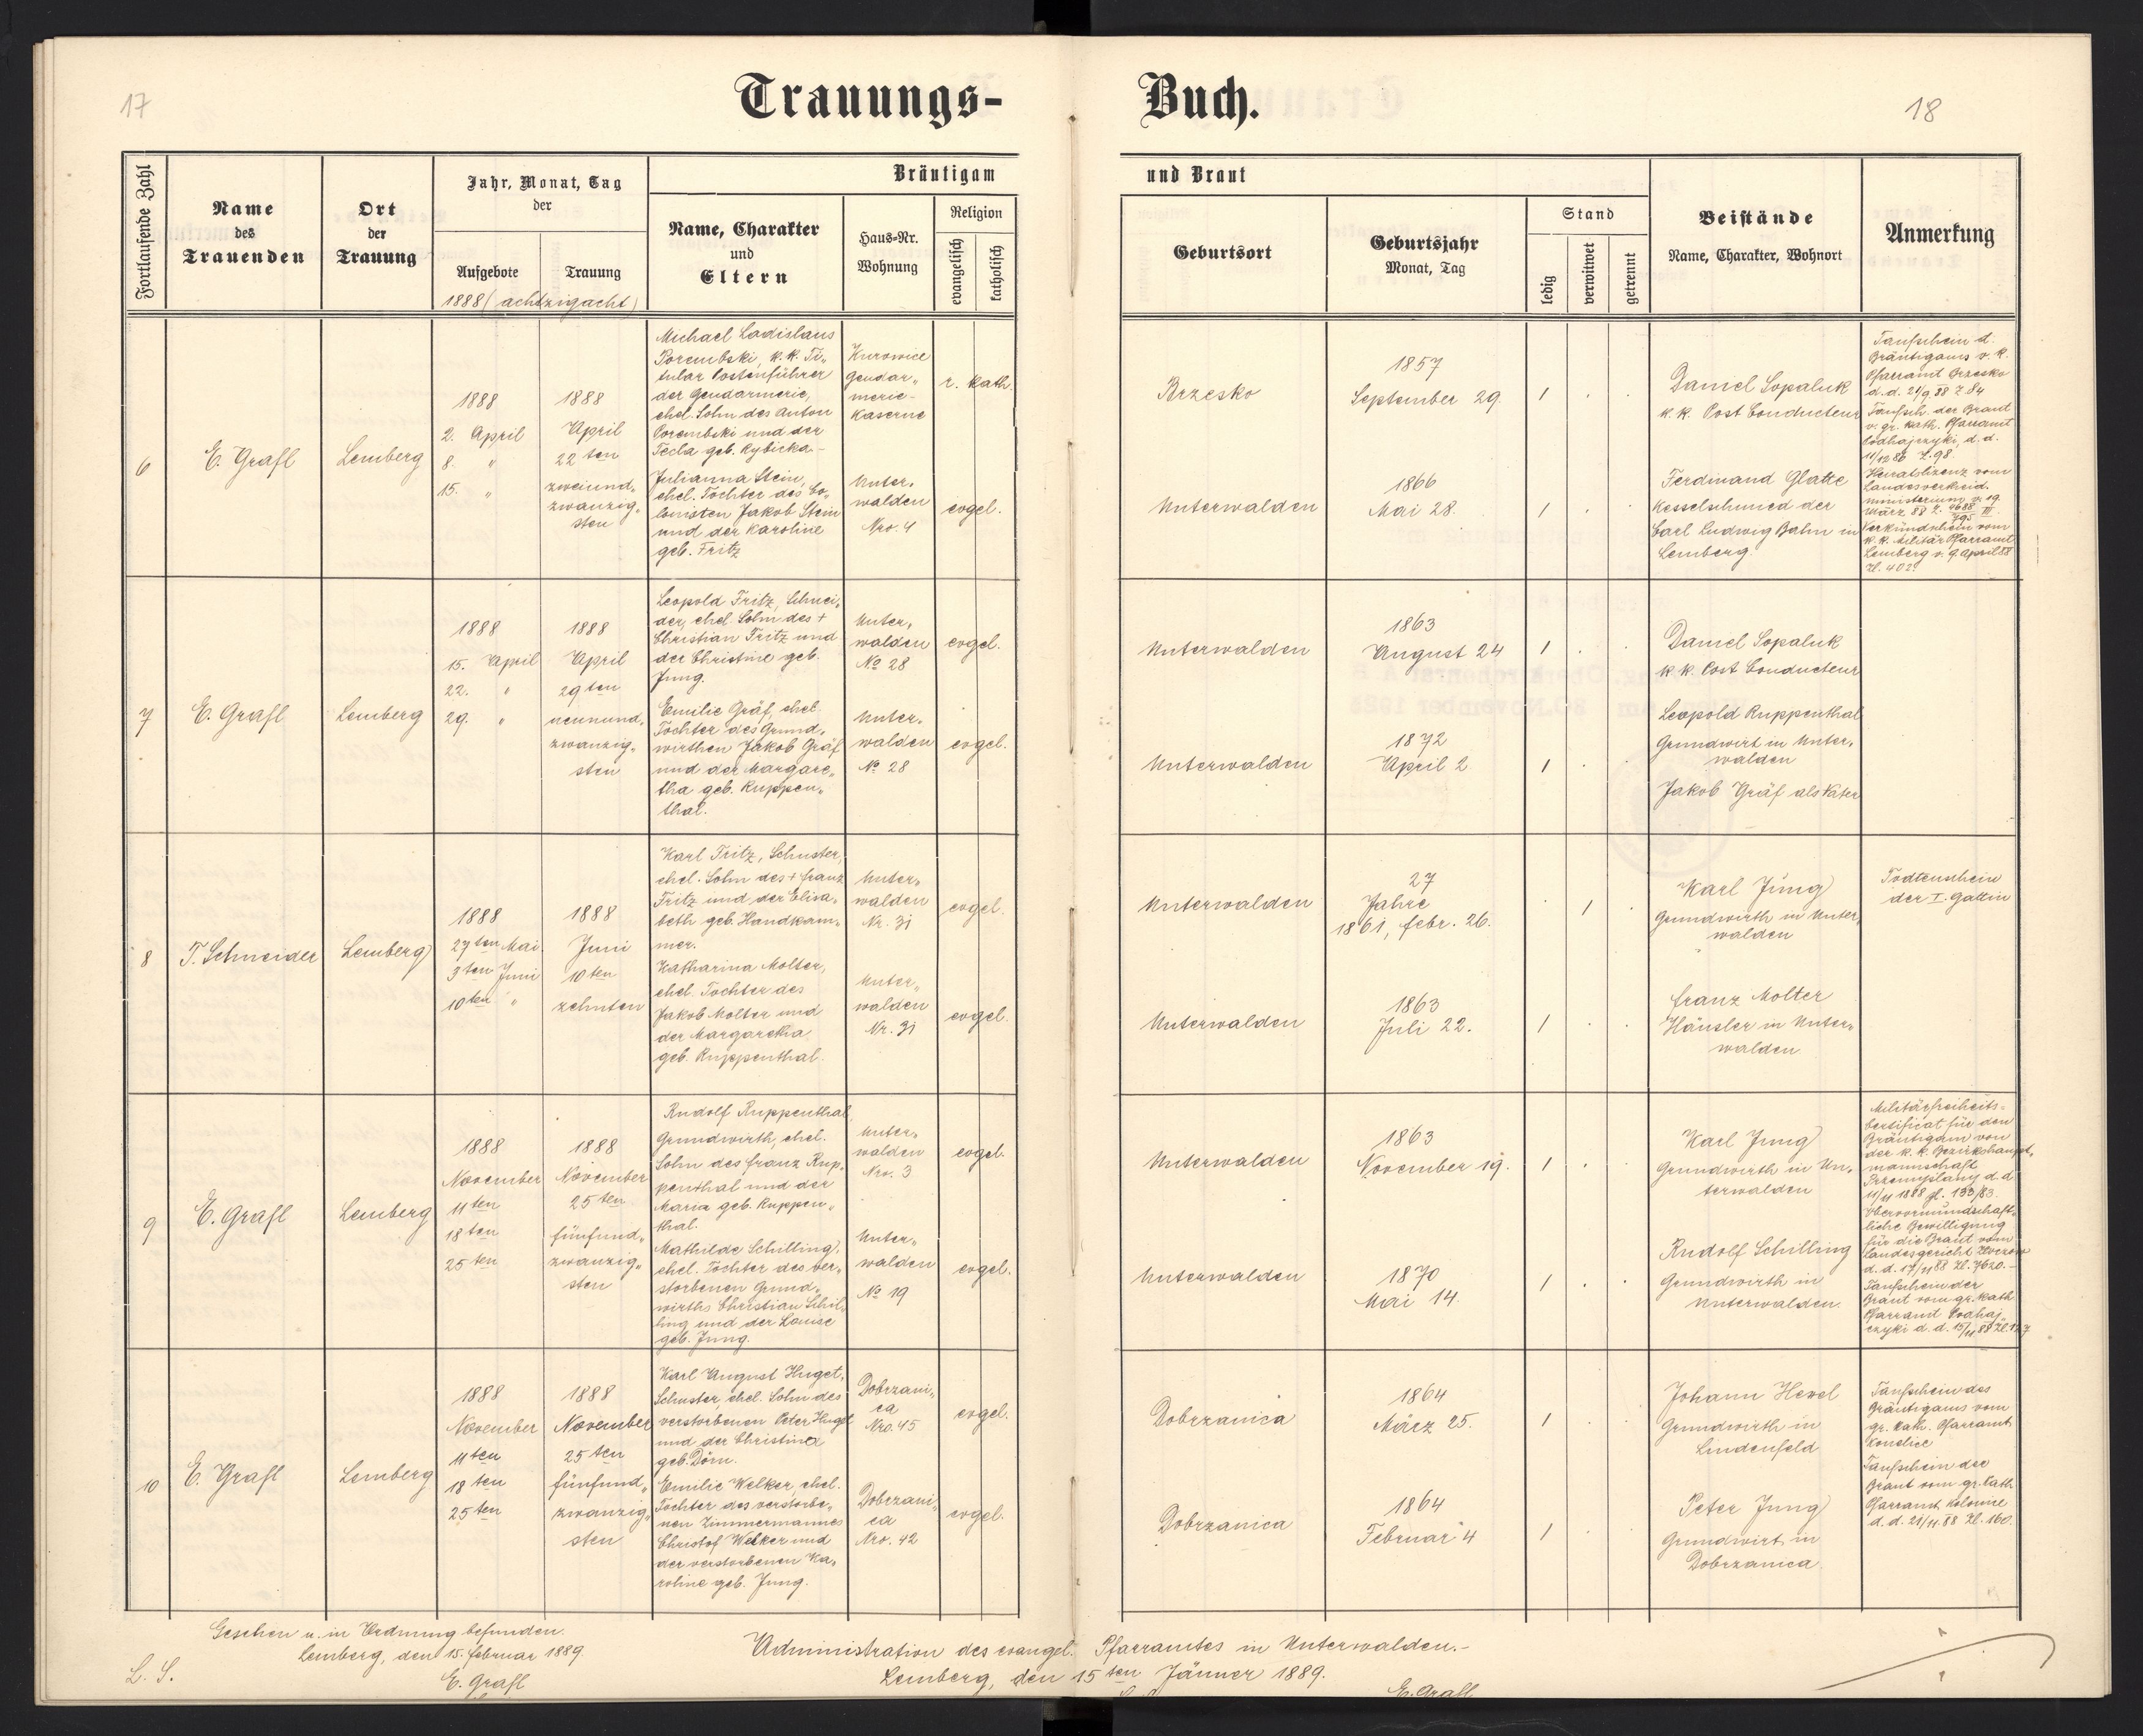 17
Trauungs-
Buch.
18
Fortlaufende Zahl
Name
des
Trauenden
Ort
der
Trauung
Jahr, Monat, Tag
der
Aufgebote
Trauung
1888 (achtzigacht)
Bräutigam
Name, Charakter
und
Eltern
Haus-Nr.
Wohnung
Religion
evangelisch
katholisch
und Braut
Geburtsort
Geburtsjahr
Monat, Tag
Stand
ledig
verwitwet
getrennt
Beistände
Name, Charakter, Wohnort
Anmerkung
6
E. Grafl
Lemberg
1888
2. April
8. "
15. "
1888
April
22ten
zweiund„
zwanzig„
sten
Michael Ladislaus
Porembski, k.k. Ti„
tular Postenführer
der Gendarmerie,
ehel. Sohn des Anton
Porembski und der
Tecla geb. Rybicka-
Kurowice
Gendar„
merie-
Kaserne
r. kath.
Julianna Stein,
ehel. Tochter des Co„
lonisten Jakob Stein
und der Karoline
geb. Fritz
Unter„
walden
Nro. 4
evgel.
Brzesko
1857
September 29.
1
Daniel Sopaluk
k.k. Post Conducteur
Unterwalden
1866
Mai 28.
1
Ferdinand Glatze
Kesselschmied der
Carl Ludwig Bahn in
Lemberg.
Taufschein d.
Bräutigams v. k.
Pfarramt Brzesko
d.d. 21/9 88 Z 84
Taufsch. der Braut
v. gr. kath. Pfarramt
Podhajczyki, d. d.
11/12 86 Z. 98
Heiratslizenz vom
Landesverteid.
ministerium v. 19.
März 88 Z.
Verkündschein vom
k.k. Militär Pfarramt
Lemberg v. 9 April 88
Zl. 402.
7
E. Grafl
Lemberg
1888
15. April
22. "
29. "
1888
April
29ten
neunund„
zwanzig„
sten
Leopold Fritz, Schnei„
der, ehel. Sohn des +
Christian Fritz und
der Christine geb.
Jung.
Unter„
walden
No 28
evgel.
Emilie Gräf, ehel.
Tochter des Grund„
wirthen Jakob Gräf
und der Margare„
tha geb. Ruppen„
thal.
Unter„
walden
No 28
evgel.
Unterwalden
1863
August 24
1
Daniel Sopaluk
k.k. Post Conducteur
Leopold Ruppenthal
Grundwirt in Unter„
walden
Unterwalden
1872
April 2
1
Jakob Gräf als Vater
8
T. Schneider
Lemberg
1888
27ten Mai
3ten Juni
10ten "
1888
Juni
10ten
zehnten
Karl Fritz, Schuster,
ehel. Sohn des + Franz
Fritz und der Elisa„
beth geb. Handkam„
mer.
Unter„
walden
Nr. 31
evgel.
Katharina Molter,
ehel. Tochter des
Jakob Molter und
der Margaretha
geb. Ruppenthal.
Unter„
walden
Nr. 31
evgel.
Unterwalden
27
Jahre
1861, Febr. 26.
1
Karl Jung
Grundwirth in Unter„
walden
Unterwalden
1863
Juli 22.
1
Franz Molter
Häusler in Unter„
walden
Todtenschein
der I. Gattin
9
E. Grafl
Lemberg
1888
November
11ten
18ten
25ten
1888
November
25ten
fünfund„
zwanzig„
sten
Rudolf Ruppenthal
Grundwirth, ehel.
Sohn des Franz Rup„
penthal und der
Maria geb. Ruppen„
thal.
Unter„
walden
Nro. 3
evgel.
Mathilde Schilling,
ehel. Tochter des ver„
storbenen Grund„
wirths Christian Schil„
ling und der Louise
geb. Jung.
Unter„
walden
No 19
evgel.
Unterwalden
1863
November 19.
1
Karl Jung
Grundwirth in Un„
terwalden
Unterwalden
1870
Mai 14.
1
Rudolf Schilling
Grundwirth in
Unterwalden.
Militärfreiheits-
Certificat für den
Bräutigam von
der k.k. Bezirkshaupt„
mannschaft
Przemyślany d. d.
11/11 1888 Zl. 133/83.
Obervormundschaft„
liche Bewilligung
für die Braut vom
Landesgericht Złoczow
d. d. 17/11 88 Zl. 7620.-
Taufschein der
Braut vom gr. kath.
Pfarramt Podhaj„
czyki d. d. 15/11 88 Zl.
10
E. Grafl
Lemberg
1888
November
11ten
18ten
25ten
1888
November
25ten
fünfund„
zwanzig„
sten
Karl August Huget,
Schuster, ehel. Sohn des
verstorbenen Peter Huget
und der Christine
geb. Dörn.
Dobrzani„
ca
Nro. 45
evgel.
Emilie Welker, ehel.
Tochter des verstorbe„
nen Zimmermannes
Christof Welker und
der verstorbenen Ka„
roline geb. Jung.
Dobrzani„
ca
Nro. 42
evgel.
Dobrzanica
1864
März 25.
1
Johann Hewel
Grundwirth in
Lindenfeld
Dobrzanica
1864
Februar 4
1
Peter Jung
Grundwirt in
Dobrzanica.
Taufschein des
Bräutigams vom
gr. kath. Pfarramt
Taufschein der
Braut vom gr. kath.
Pfarramt
d. d. 21/11. 88 Zl. 160.
Gesehen u. in Ordnung befunden.
Lemberg, den 15. Februar 1889
L. S.
E. Grafl
Administration des evangel. Pfarramtes in Unterwalden.-
Lemberg, den 15ten Jänner 1889.
E. Grafl